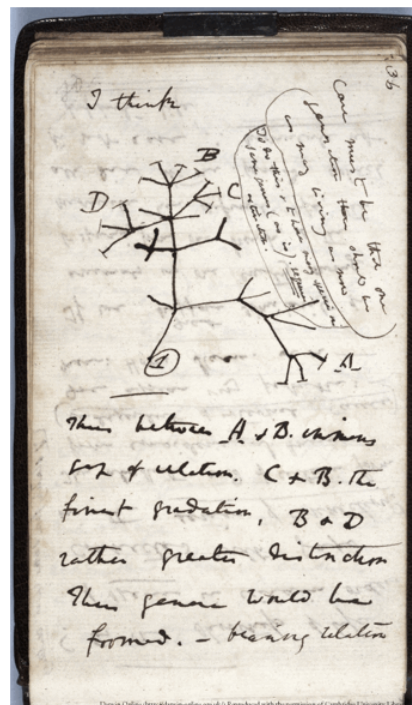 I think
B
C
D
A
1
36
Case must be that one
generation then should be
as many living as now
To do this & to have many species in
same genus (as is) requires
extinction
Thus between A & B. immense
gap of relation. C & B. the
finest gradation, B & D
rather greater distinction
Thus genera would be
formed. — bearing relation